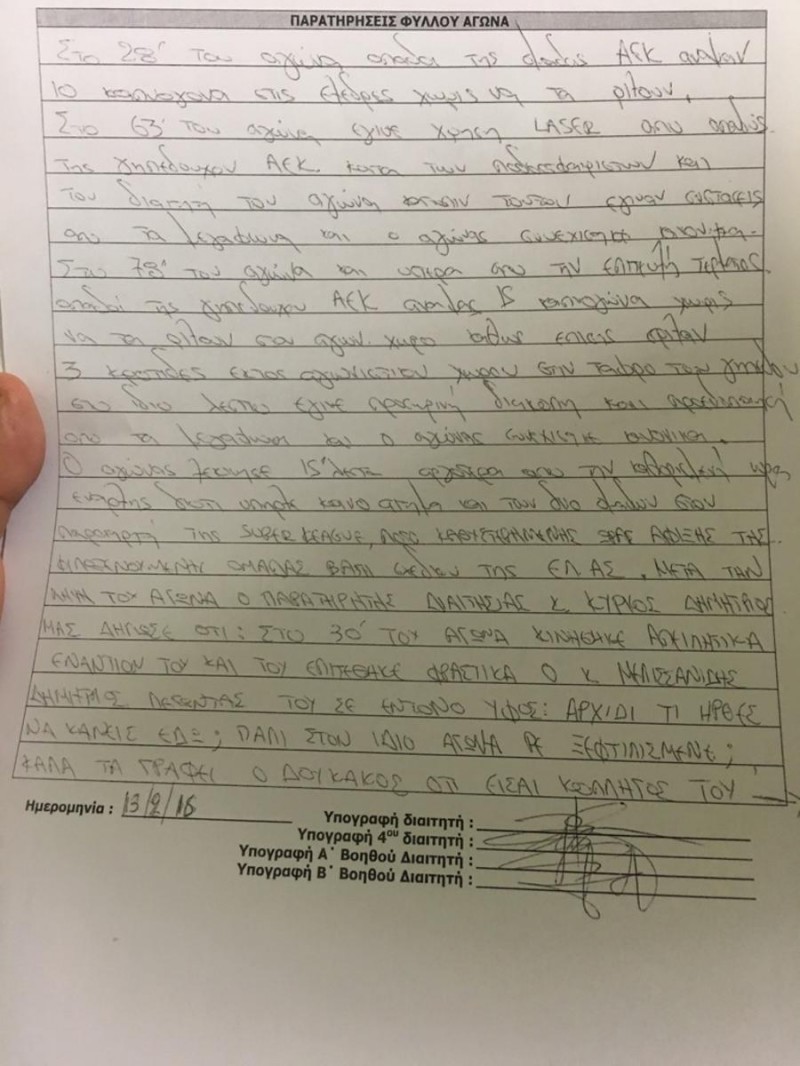 ΠΑΡΑΤΗΡΗΣΕΙΣ ΦΥΛΛΟΥ ΑΓΩΝΑ
Στο 28' του αγώνα οπαδοί της φιλαθλ. ΑΕΚ αναψαν
10 καπνογονα στις εξεδρες χωρις να τα ριξουν.
Στο 63' του αγώνα εγινε χρηση LASER απο οπαδούς
της γηπεδουχου ΑΕΚ. κατα των ποδοσφαιριστων και
του διαιτητή του αγώνα κατοπιν τουτου εγιναν συστασεις
απο τα μεγαφωνα και ο αγώνας συνεχιστηκε κανονικα.
Στο 78' του αγώνα και υστερα απο την επιτευξη τερματος
οπαδοί της γηπεδουχου ΑΕΚ αναψαν 15 καπνογόνα χωρις
να τα ριξουν στον αγων. χωρο καθως επισης εριξαν
3 κροτιδες εκτος αγωνιστικου χωρου στην ταφρο του γηπεδου
στο ιδιο λεπτο εγινε προσωρινή διακοπη και προειδοποιηση
απο τα μεγαφωνα και ο αγώνας συνεχιστηκε κανονικα.
Ο αγώνας ξεκινησε 15' λεπτα αργοτερα απο την καθορισμενη ωρα
εναρξης διοτι υπηρξε κοινο αιτημα και των δυο ομαδων στον
παρατηρητή της SUPER LEAGUE, λογω ΚΑΘΥΣΤΕΡΗΜΕΝΗΣ ΑΦΙΞΗΣ ΤΗΣ
ΦΙΛΟΞΕΝΟΥΜΕΝΗΣ ΟΜΑΔΑΣ ΒΑΣΗ σχεδιου της ΕΛ.ΑΣ. ΜΕΤΑ ΤΗΝ
ΛΗΞΗ ΤΟΥ ΑΓΩΝΑ Ο ΠΑΡΑΤΗΡΗΤΗΣ ΔΙΑΙΤΗΣΙΑΣ Κ. ΚΥΡΚΟΣ ΔΗΜΗΤΡΙΟΣ
ΜΑΣ ΔΗΛΩΣΕ ΟΤΙ: ΣΤΟ 30' ΤΟΥ ΑΓΩΝΑ ΚΙΝΗΘΗΚΕ ΑΠΕΙΛΗΤΙΚΑ
ΕΝΑΝΤΙΟΝ ΤΟΥ ΚΑΙ ΤΟΥ ΕΠΙΤΕΘΗΚΕ ΦΡΑΣΤΙΚΑ Ο Κ. ΜΕΛΙΣΣΑΝΙΔΗΣ
ΔΗΜΗΤΡΙΟΣ ΛΕΓΟΝΤΑΣ ΤΟΥ ΣΕ ΕΝΤΟΝΟ ΥΦΟΣ: ΑΡΧΙΔΙ ΤΙ ΗΡΘΕΣ
ΝΑ ΚΑΝΕΙΣ ΕΔΩ; ΠΑΛΙ ΣΤΟΝ ΙΔΙΟ ΑΓΩΝΑ ΡΕ ΞΕΦΤΙΛΙΣΜΕΝΕ;
ΚΑΛΑ ΤΑ ΓΡΑΦΕΙ Ο ΔΟΥΚΑΚΟΣ ΟΤΙ ΕΙΣΑΙ ΚΩΛΛΗΤΟΣ ΤΟΥ
Ημερομηνία : 13/2/16
Υπογραφή διαιτητή :
Υπογραφή 4ου διαιτητή :
Υπογραφή Α΄ Βοηθού Διαιτητή :
Υπογραφή Β΄ Βοηθού Διαιτητή :